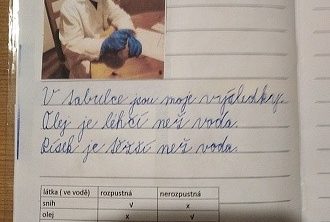 V tabulce jsou moje výsledky.
Olej je lehčí než voda.
Písek je těžší než voda.
látka ( ve vodě) rozpustná nerozpustná
sníh √ x
olej x √